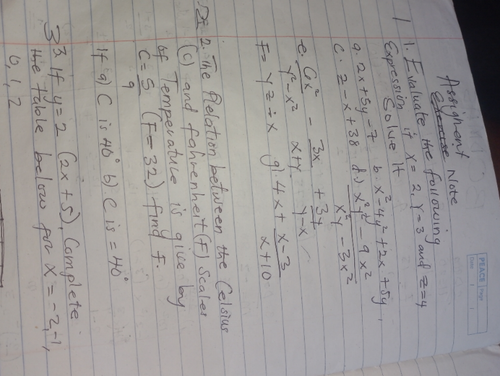 Assignment Note
Exercise
1. Evaluate the following
Expression if x = 2, y = 3 and z = 4
Solve it
a. 2x + 5y - 7 b. x² 4y² + 2x + 5y
c. 2 - x + 38 d.) x²z² - 9x²
xy² - 3x²
e. 6x² - 3x + 3y
y² - x² x + y y - x
F = yz ÷ x g) 4x + x - 3
x + 10
2. The Relation between the Celsius
(C) and Fahrenheit (F) Scales
of Temperature is give by
C = 5 (F = 32) find F.
9
If a) C is 40° b) C is = 40°
3. If y = 2 (2x + 5), Complete
the table below for x = -2, -1,
0, 1, 2
PEACE